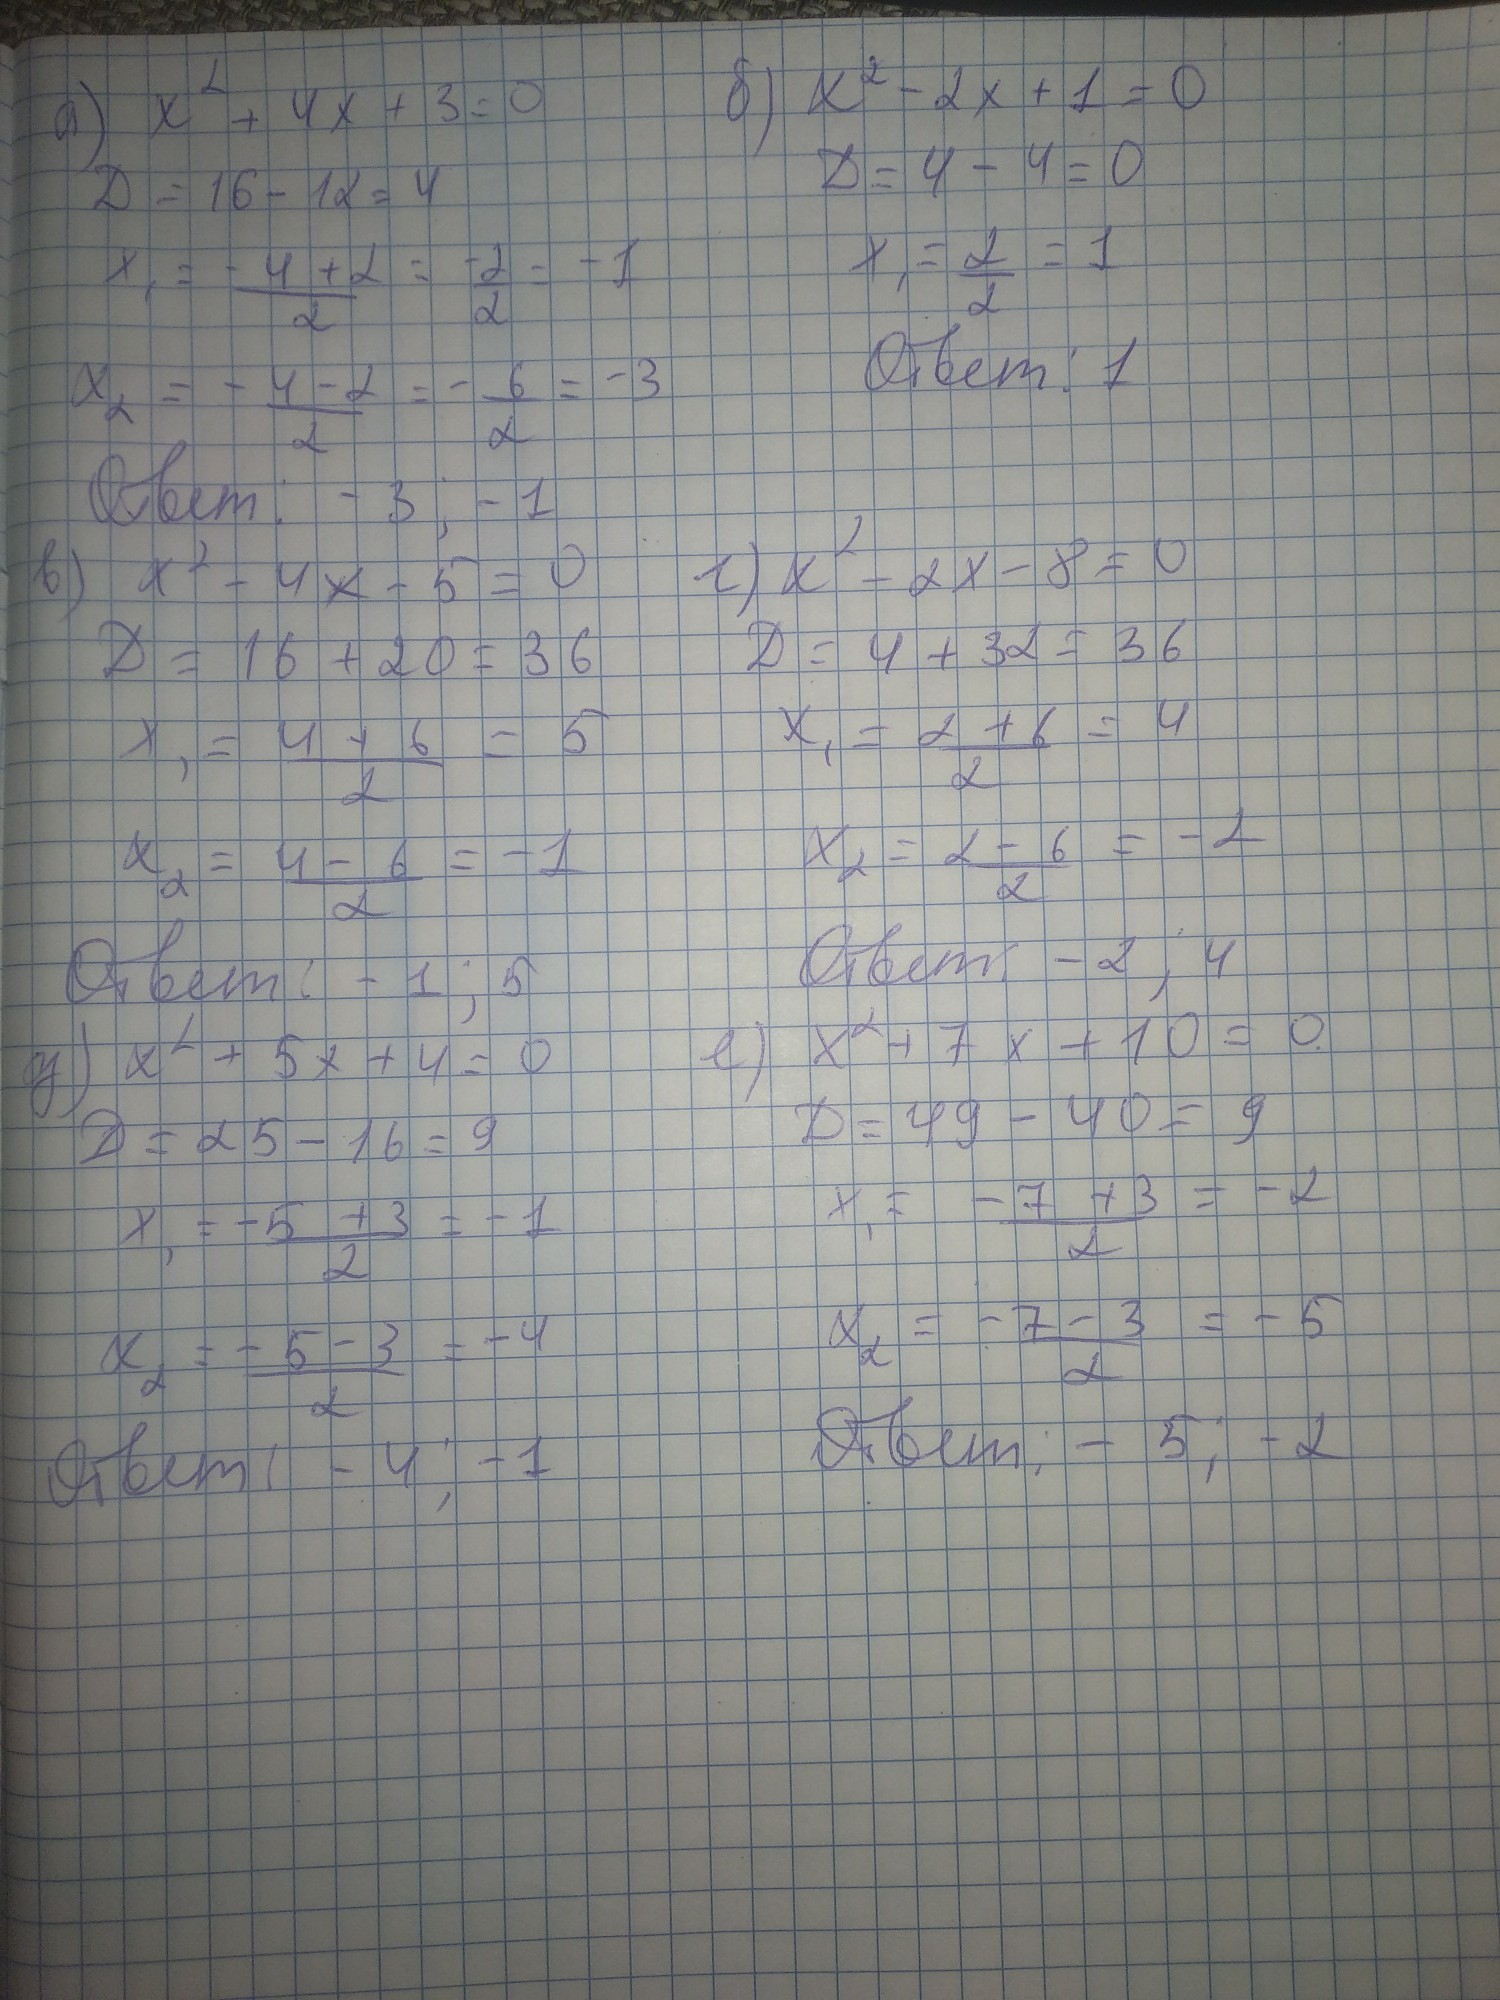 а) x² + 4x + 3 = 0
D = 16 - 12 = 4
x₁ = (-4 + 2)/2 = -2/2 = -1
x₂ = (-4 - 2)/2 = -6/2 = -3
Ответ: -3; -1
б) x² - 2x + 1 = 0
D = 4 - 4 = 0
x₁ = 2/2 = 1
Ответ: 1
в) x² - 4x - 5 = 0
D = 16 + 20 = 36
x₁ = (4 + 6)/2 = 5
x₂ = (4 - 6)/2 = -1
Ответ: -1; 5
г) x² - 2x - 8 = 0
D = 4 + 32 = 36
x₁ = (2 + 6)/2 = 4
x₂ = (2 - 6)/2 = -2
Ответ: -2; 4
д) x² + 5x + 4 = 0
D = 25 - 16 = 9
x₁ = (-5 + 3)/2 = -1
x₂ = (-5 - 3)/2 = -4
Ответ: -4; -1
е) x² + 7x + 10 = 0
D = 49 - 40 = 9
x₁ = (-7 + 3)/2 = -2
x₂ = (-7 - 3)/2 = -5
Ответ: -5; -2